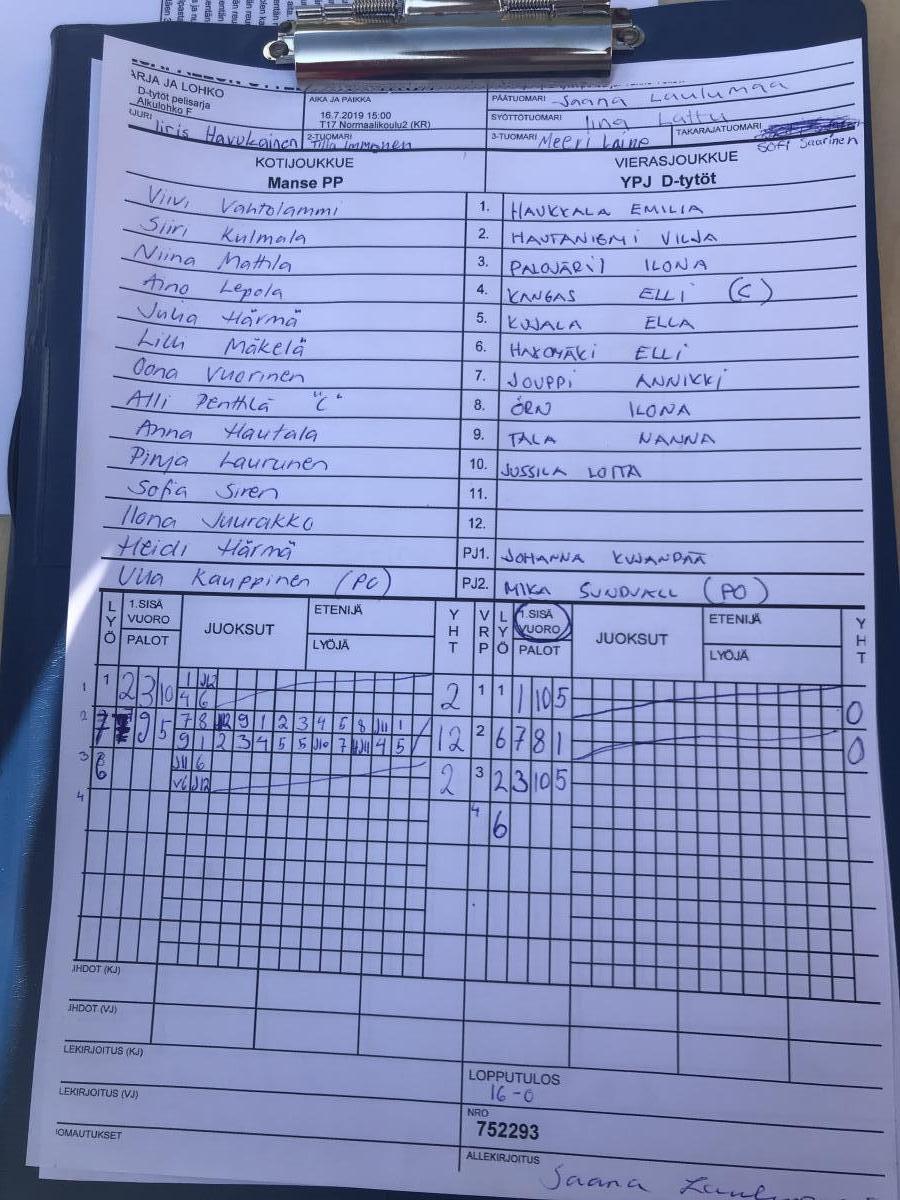 ARJA JA LOHKO
D-tytöt pelisarja
Alkulohko F
AIKA JA PAIKKA
16.7.2019 15:00
T17 Normaalikoulu2 (KR)
PÄÄTUOMARI Saana Laulumaa
SYÖTTÖTUOMARI Iina Lattu
Iiris Havukainen
2-TUOMARI Tilla Immonen
3-TUOMARI Meeri Laine
TAKARAJATUOMARI Sofi Saarinen
KOTIJOUKKUE
VIERASJOUKKUE
Manse PP
YPJ D-tytöt
Viivi Vahtolammi 1. HAUKKALA EMILIA
Siiri Kulmala 2. HAUTANIEMI VILJA
Niina Mattila 3. PALOJÄRVI ILONA
Aino Lepola 4. KANGAS ELLI (C)
Julia Härmä 5. KUJALA ELLA
Lilli Mäkelä 6. HAKOMÄKI ELLI
Oona Vuorinen 7. JOUPPI ANNIKKI
Alli Penttilä "C" 8. ÖRN ILONA
Anna Hautala 9. TALA NANNA
Pinja Laurunen 10. JUSSILA LOTTA
Sofia Siren 11.
Ilona Juurakko 12.
Heidi Härmä PJ1. JOHANNA KUJANPÄÄ
Ulla Kauppinen (PO) PJ2. MIKA SUNDVALL (PO)
LYÖ 1.SISÄ VUORO PALOT JUOKSUT ETENIJÄ LYÖJÄ YHT VRP LYÖ 1.SISÄ VUORO PALOT JUOKSUT ETENIJÄ LYÖJÄ YHT
1 1 2 3 10 1 J12 2 1 1 1 10 5 0
4 6
2 7 9 5 7 8 J12 9 1 2 3 4 5 8 J11 1 12 2 6 7 8 1 0
9 1 2 3 4 5 5 J10 7 J11 4 5
3 6 J11 6 2 3 2 3 10 5
V6 J12
4 4 6
JHDOT (KJ)
JHDOT (VJ)
LEKIRJOITUS (KJ)
LEKIRJOITUS (VJ)
OMAUTUKSET
LOPPUTULOS
16-0
NRO
752293
ALLEKIRJOITUS
Saana